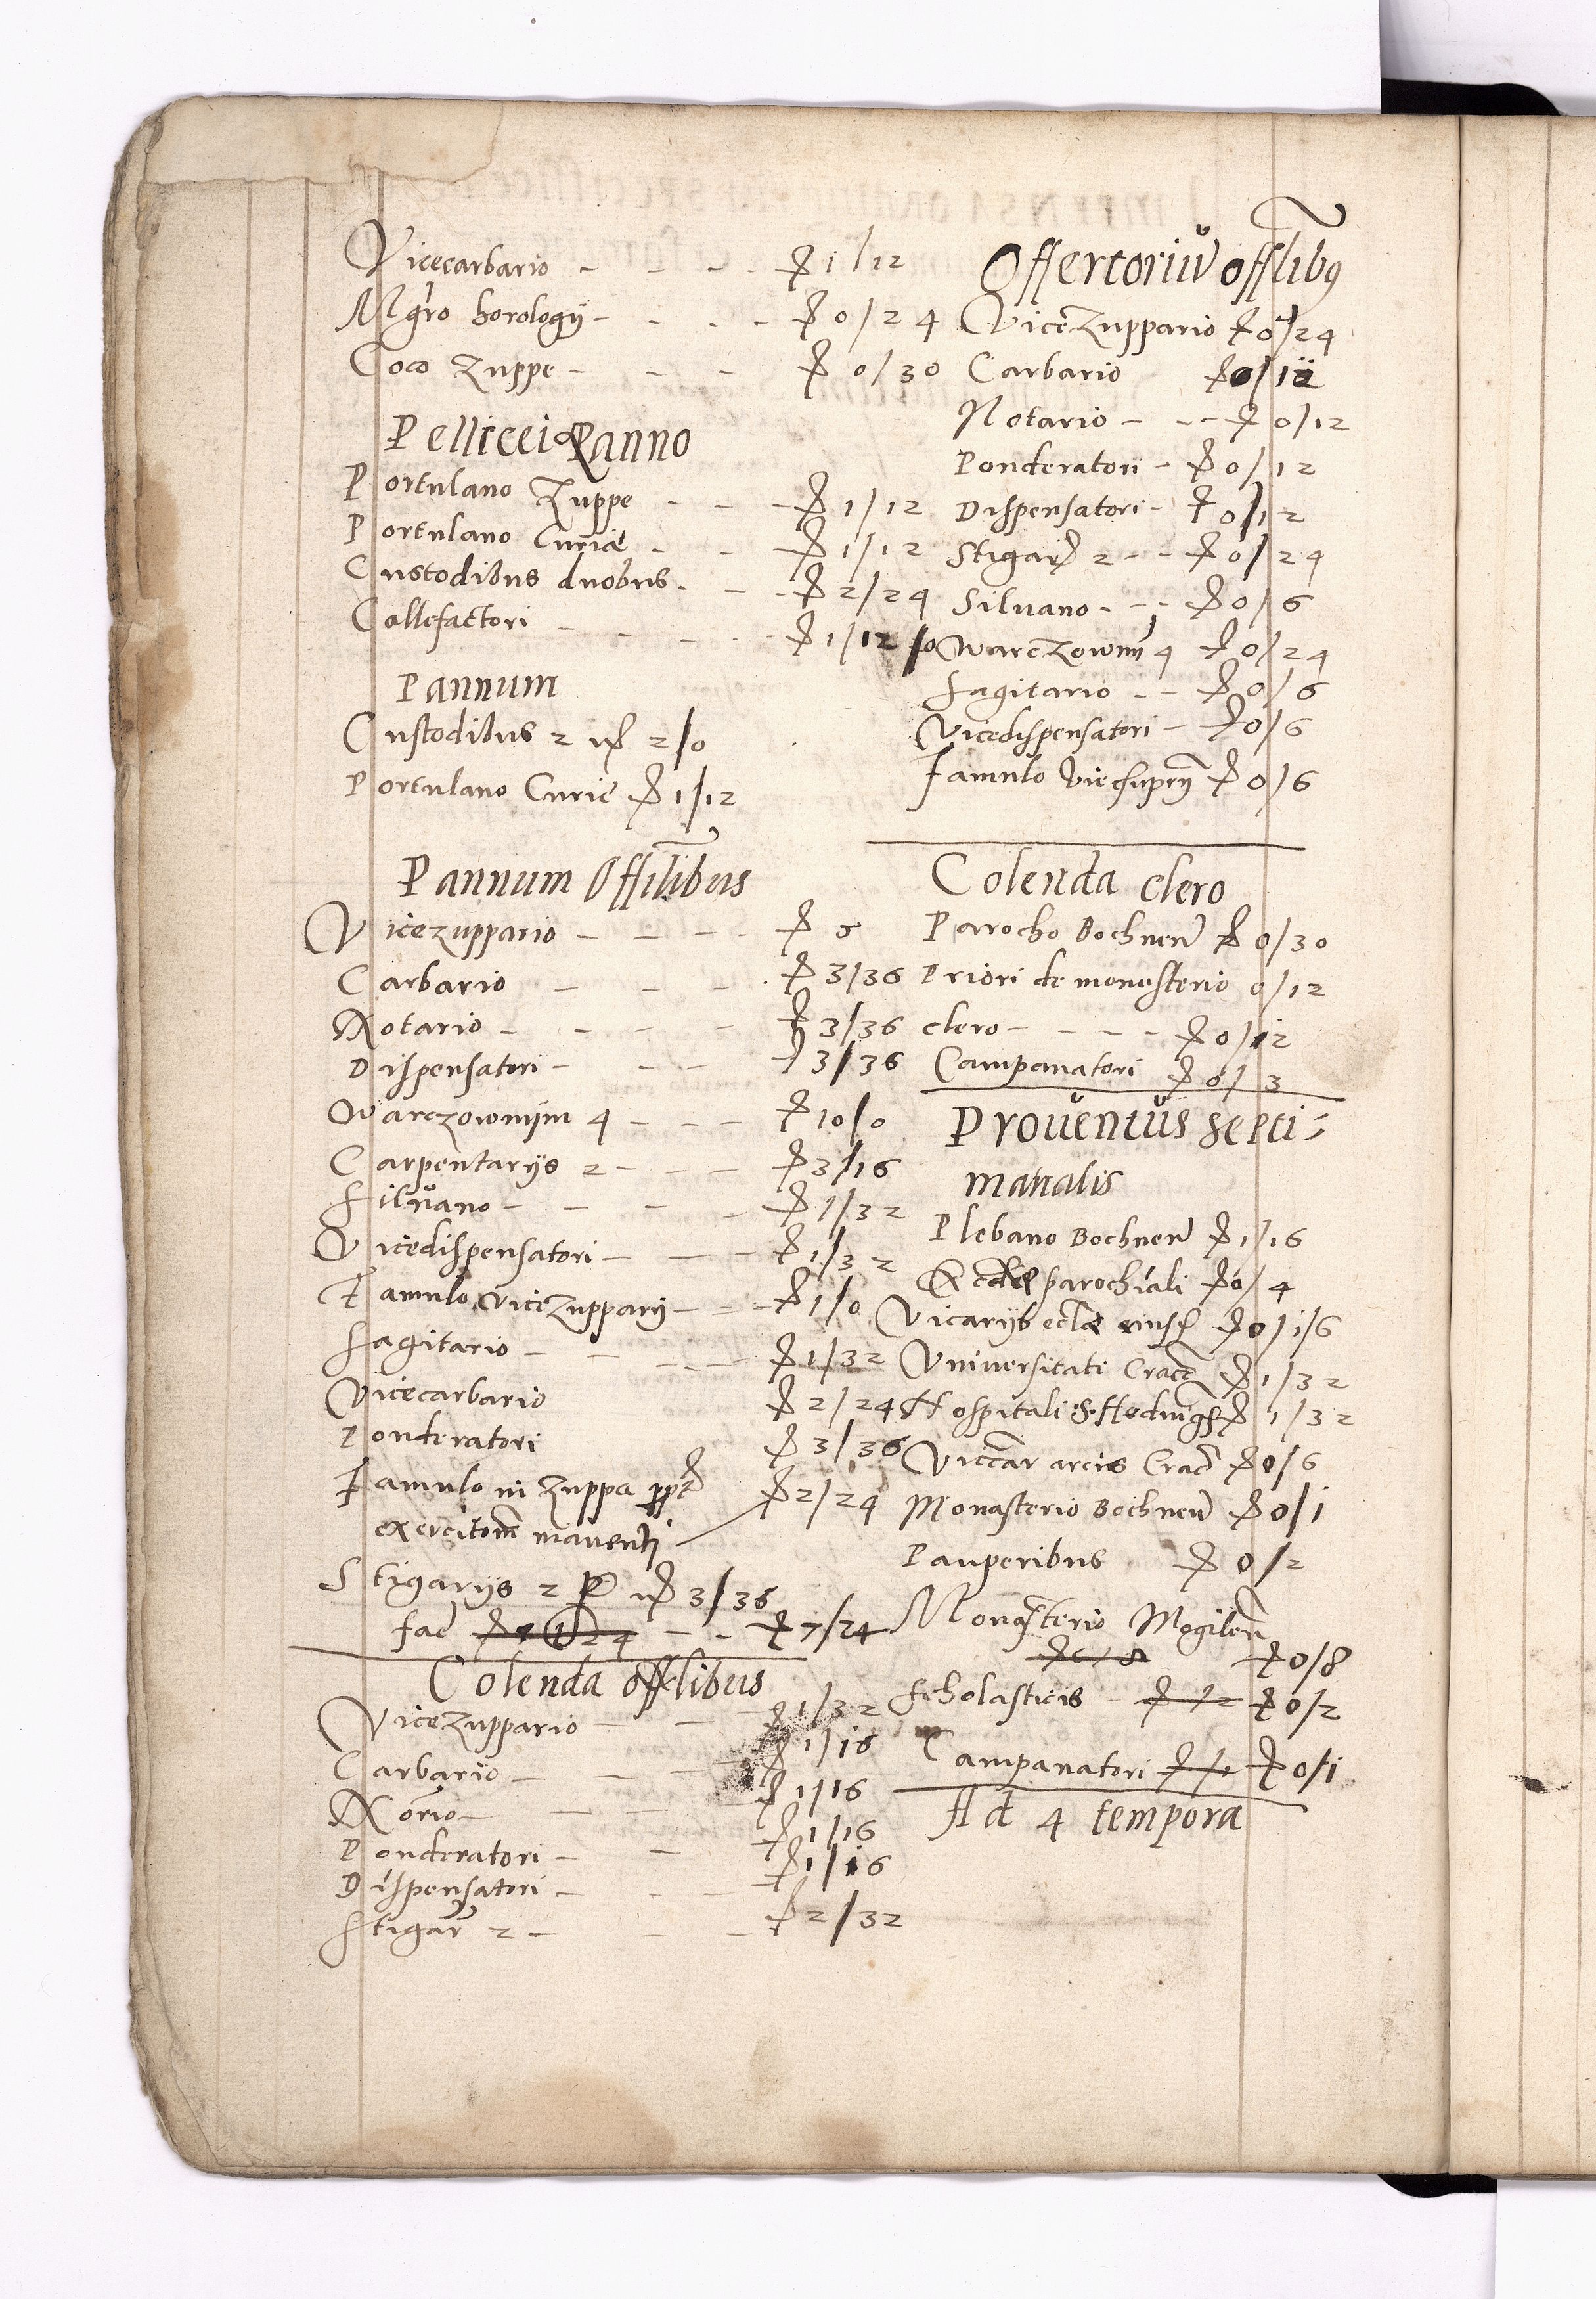 Vicecarbario - - - - ꝟ 1/12
Mgro horologij - - - - ꝟ 0/24
Coco Zuppe - - - ꝟ 0/30
Pellicei Panno
Portulano Zuppe - - - ꝟ 1/12
Portulano Curiae - - - ꝟ 1/12
Custodibus duobus - - - ꝟ 2/24
Callefactori - - - - ꝟ 1/12
Pannum
Custodibus 2 2/0
Portulano Curie ꝟ 1/12
Pannum Offilibus
Vicezuppario - - - - ꝟ 5
Carbario - - - - ꝟ 3/36
Notario - - - - ꝟ 3/36
Dispensatori - - - ꝟ 3/36
Warczownijm 4 - - - ꝟ 10/0
Carpentarijs 2 - - - ꝟ 3/16
Siluano - - - - ꝟ 1/32
Vicedispensatori - - - ꝟ 1/32
Famulo Vicezupparij - - - ꝟ 1/0
Sagitario - - - - ꝟ 1/32
Vicecarbario ꝟ 2/24
Ponderatori ꝟ 3/36
Famulo in Zuppa ꝟ 2/24
Stigarijs 2 3/36
fac - - ꝟ 7/24
Colenda offlibus
Vicezuppario - - - ꝟ 1/32
Carbario - - - - ꝟ 1/16
Norio - - - - ꝟ 1/16
Ponderatori - - ꝟ 1/16
Dispensatori - - - ꝟ 1/16
Stigar 2 - - - ꝟ 2/32
Offertoriu offlibus
Vicezuppario ꝟ 0/24
Carbario ꝟ 0/12
Notario - - - ꝟ 0/12
Ponderatori - ꝟ 0/12
Dispensatori - ꝟ 0/12
Stigar 2 - - ꝟ 0/24
Siluano - - - ꝟ 0/6
Warczownij 4 ꝟ 0/24
Sagitario - - ꝟ 0/6
Vicedispensatori - ꝟ 0/6
Famulo ꝟ 0/6
Colenda clero
Parocho Bochnen ꝟ 0/30
Priori de monasterio 0/12
Clero - - - - ꝟ 0/12
Campanatori ꝟ 0/3
Prouentus septi-
manalis
Plebano Bochnen ꝟ 1/16
parochiali ꝟ 0/4
Vicarijs eccle ꝟ 0/16
Vniuersitati Crac ꝟ 1/32
Hospitali S. Hedwigis ꝟ 1/32
Viccar arcis Crac ꝟ 0/6
Monasterio Bochnen ꝟ 0/1
Pauperibus ꝟ 0/2
Monasterio Mogilen
ꝟ 0/8
Scholasticis - ꝟ 0/2
Campanatori ꝟ 0/1
Ad 4 tempora